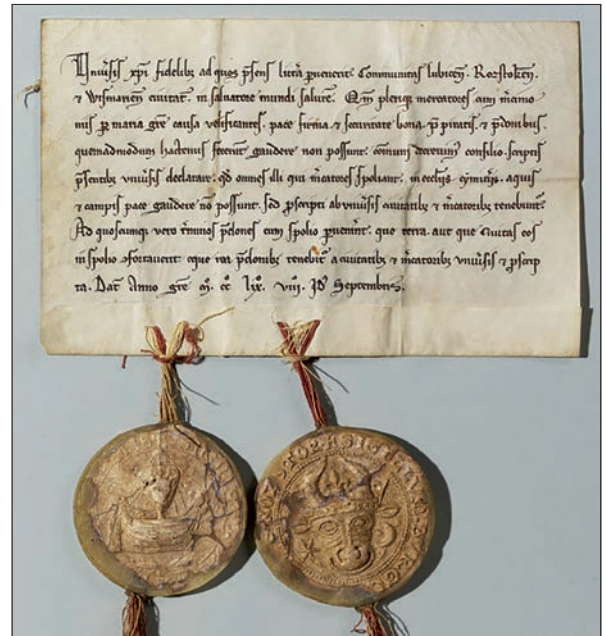 Vniu͛sis xp̄i fidelibꝫ ad quos p̄sens litt͛a ꝑuenerit. Communitas lubicen̄. Rozstoken̄.
⁊ Wismarien̄ ciuitat͛. in saluatore mundi salutē. Qm̄ pleriqꝫ mercatores cum m͛cimo
niis ꝑ maria gr̄e causa velificantes. pace firma ⁊ securitate bona. p̄ piratis. ⁊ p̄donibus.
quemadmodum hactenus fecerunt gaudere non possunt. cōmuni decreuim⁹ consilio. scriptis
p̄sentibꝫ vniu͛sis declarare. qd̄ omnes illi qui m͛catores spoliant. in eccl̄iis cymit͛iis. aquis
⁊ campis pace gaudere nō possunt. sed ꝓscripti ab vniu͛sis ciuitatibꝫ ⁊ m͛catoribꝫ tenebunt͛.
Ad quoscumqꝫ vero t͛minos p̄dones cum spolio ꝑuen͛int. que terra. aut que Ciuitas eos
in spolio ꝯfortauerit. eque rea p̄donibꝫ tenebit͛ a ciuitatibꝫ ⁊ m͛catoribꝫ vniu͛sis ⁊ ꝓscrip
ta. Dat͛ Anno gr̄e m̊. cc̊ lix̊. viii̊. Id͛ Septembris.